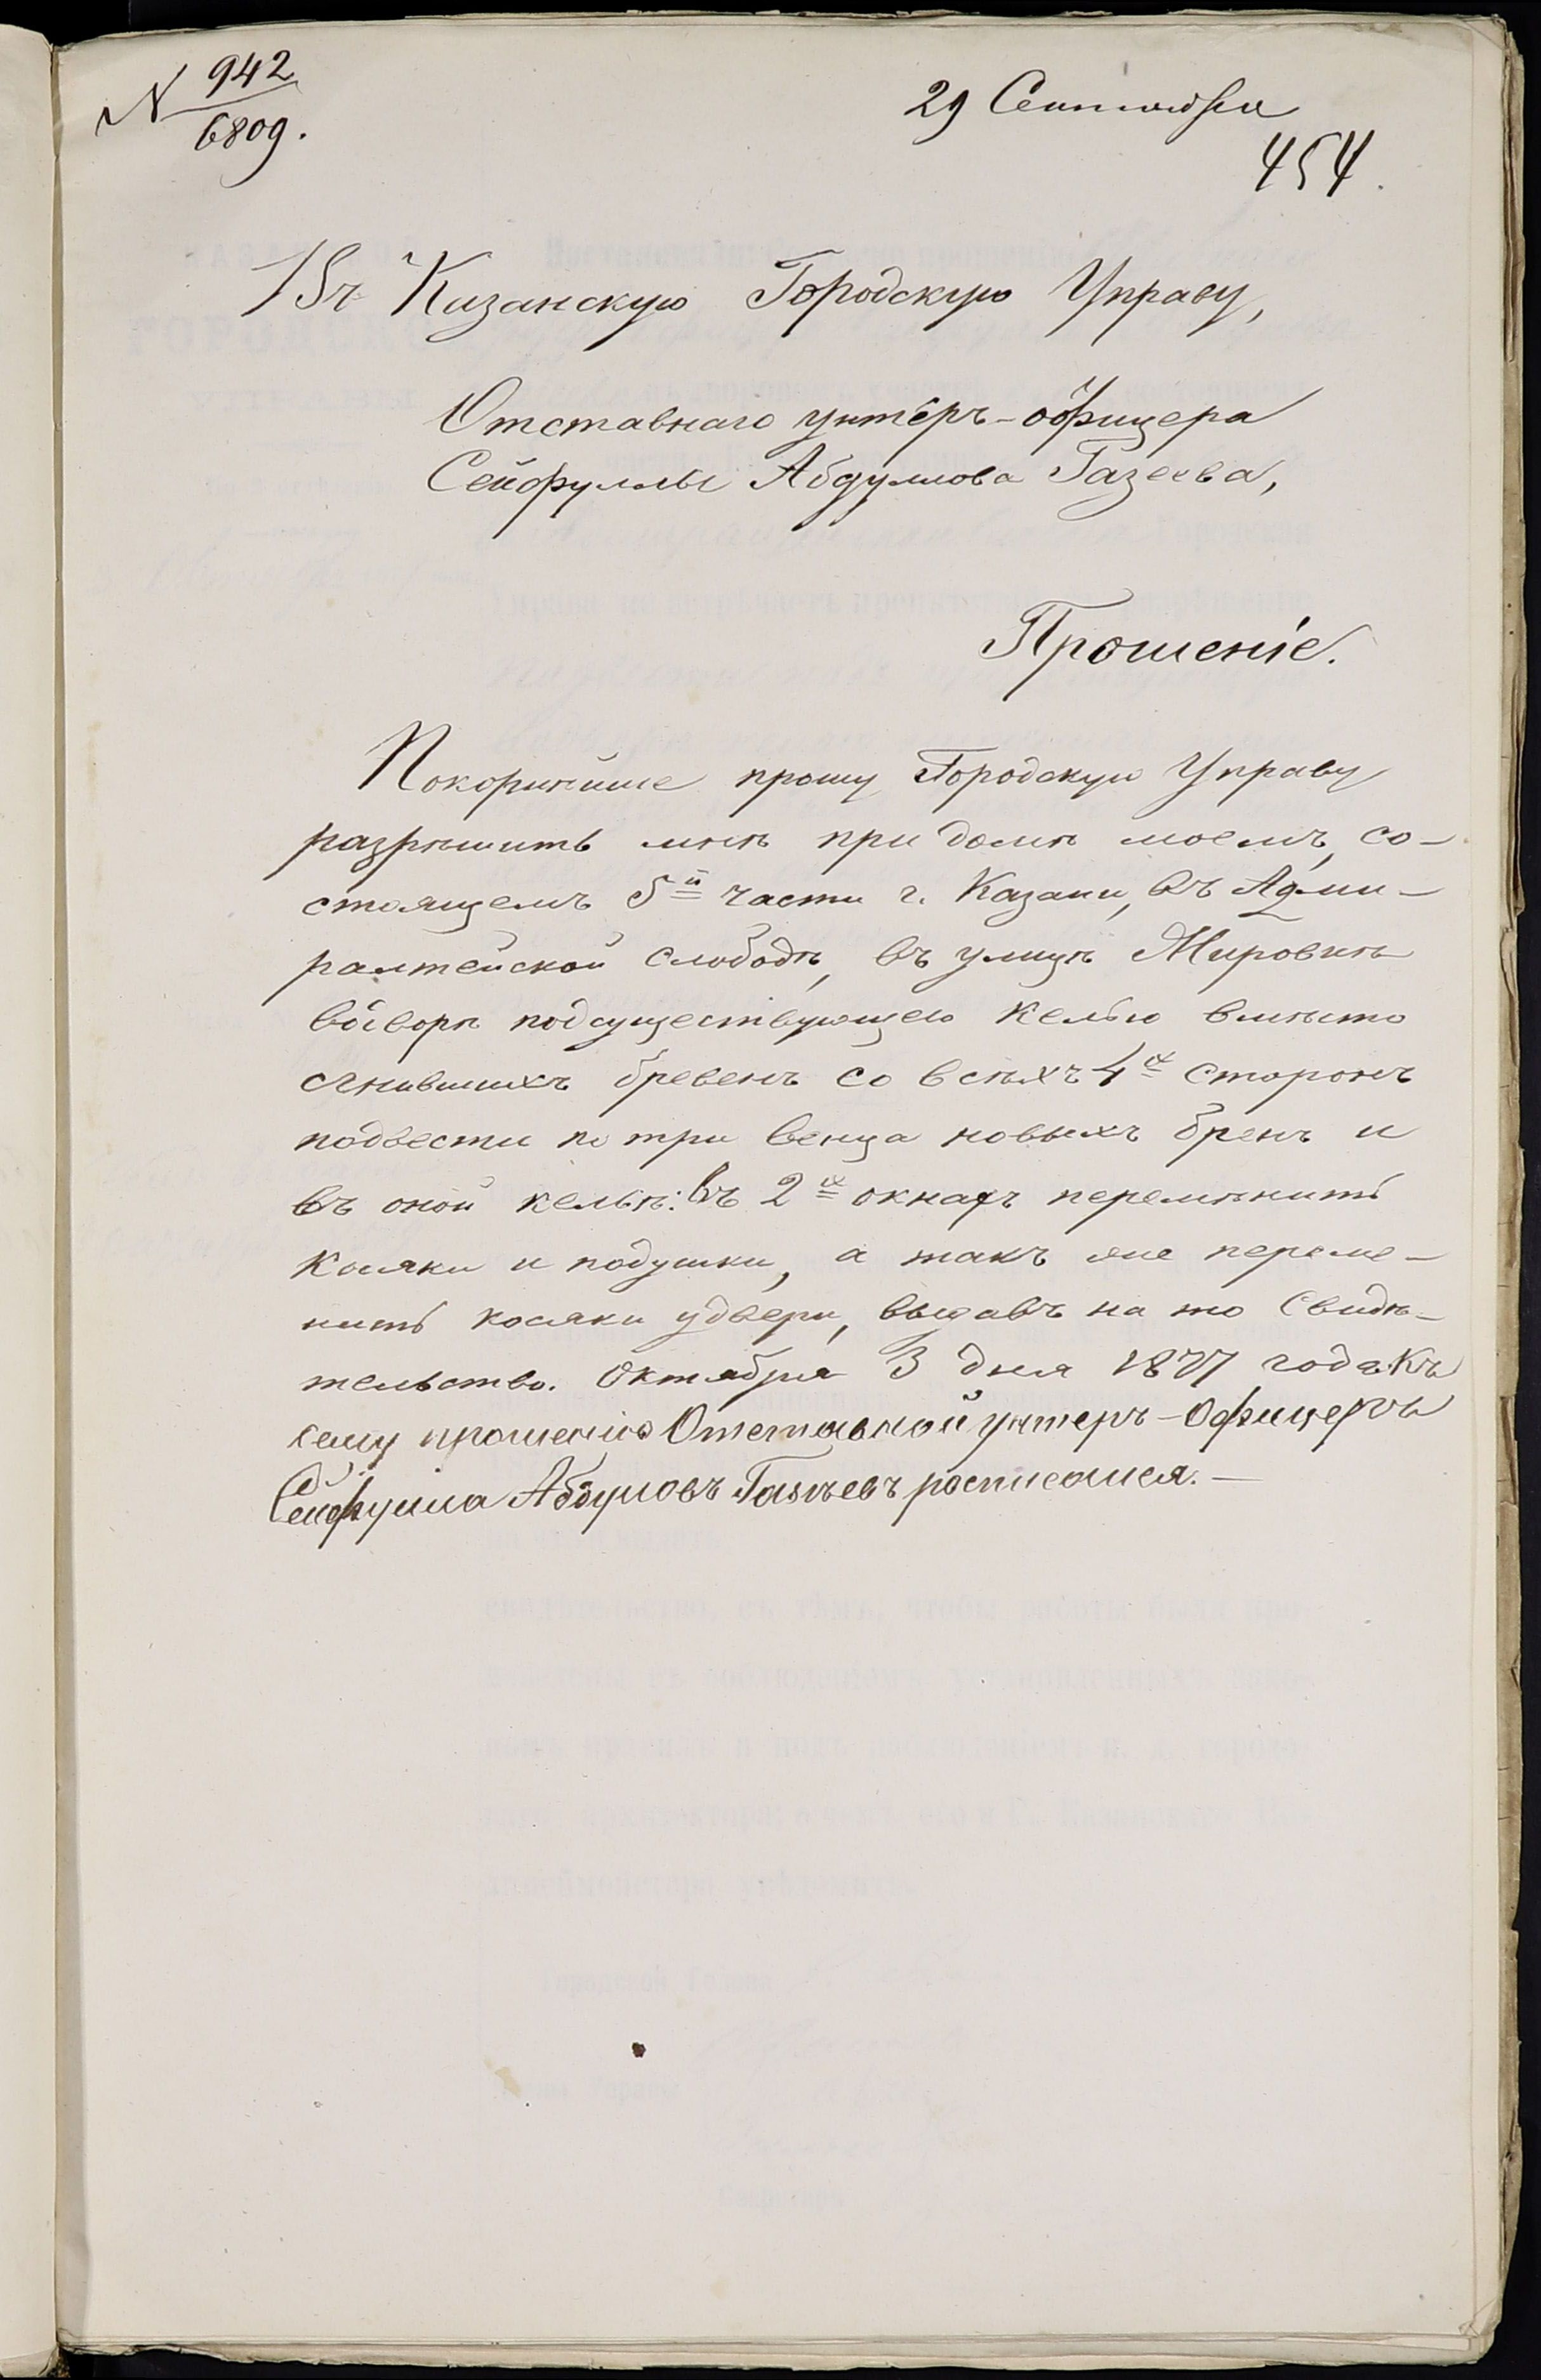 N 942
6809.
29 Сентября
454.
Въ Казанскую Городскую Управу,
Отставнаго унтеръ-офицера
Сейфуллы Абдулова Газеева,
Прошеніе.
Покорнѣйше прошу Городскую Управу
разрѣшить мнѣ при домѣ моемъ, со-
стоящемъ 5й части г. Казани, въ Адми-
ралтейской слободѣ, въ улицѣ Мировкѣ
водворѣ подсуществующею келью вмѣсто
сгнившихъ бревенъ со всѣхъ 4х сторонъ
подвести по три венца новыхъ бренъ и
въ оной кельѣ: въ 2х окнахъ перемѣнить
косяки и подушки, а такъ же переме-
нить косяки удвери, выдавъ на то свидѣ-
тельство. Октября 3 дня 1877 года. Къ
сему прошенію Отставной унтеръ-Офицеръ
Сейфулла Абдуловъ Газѣевъ росписался. —